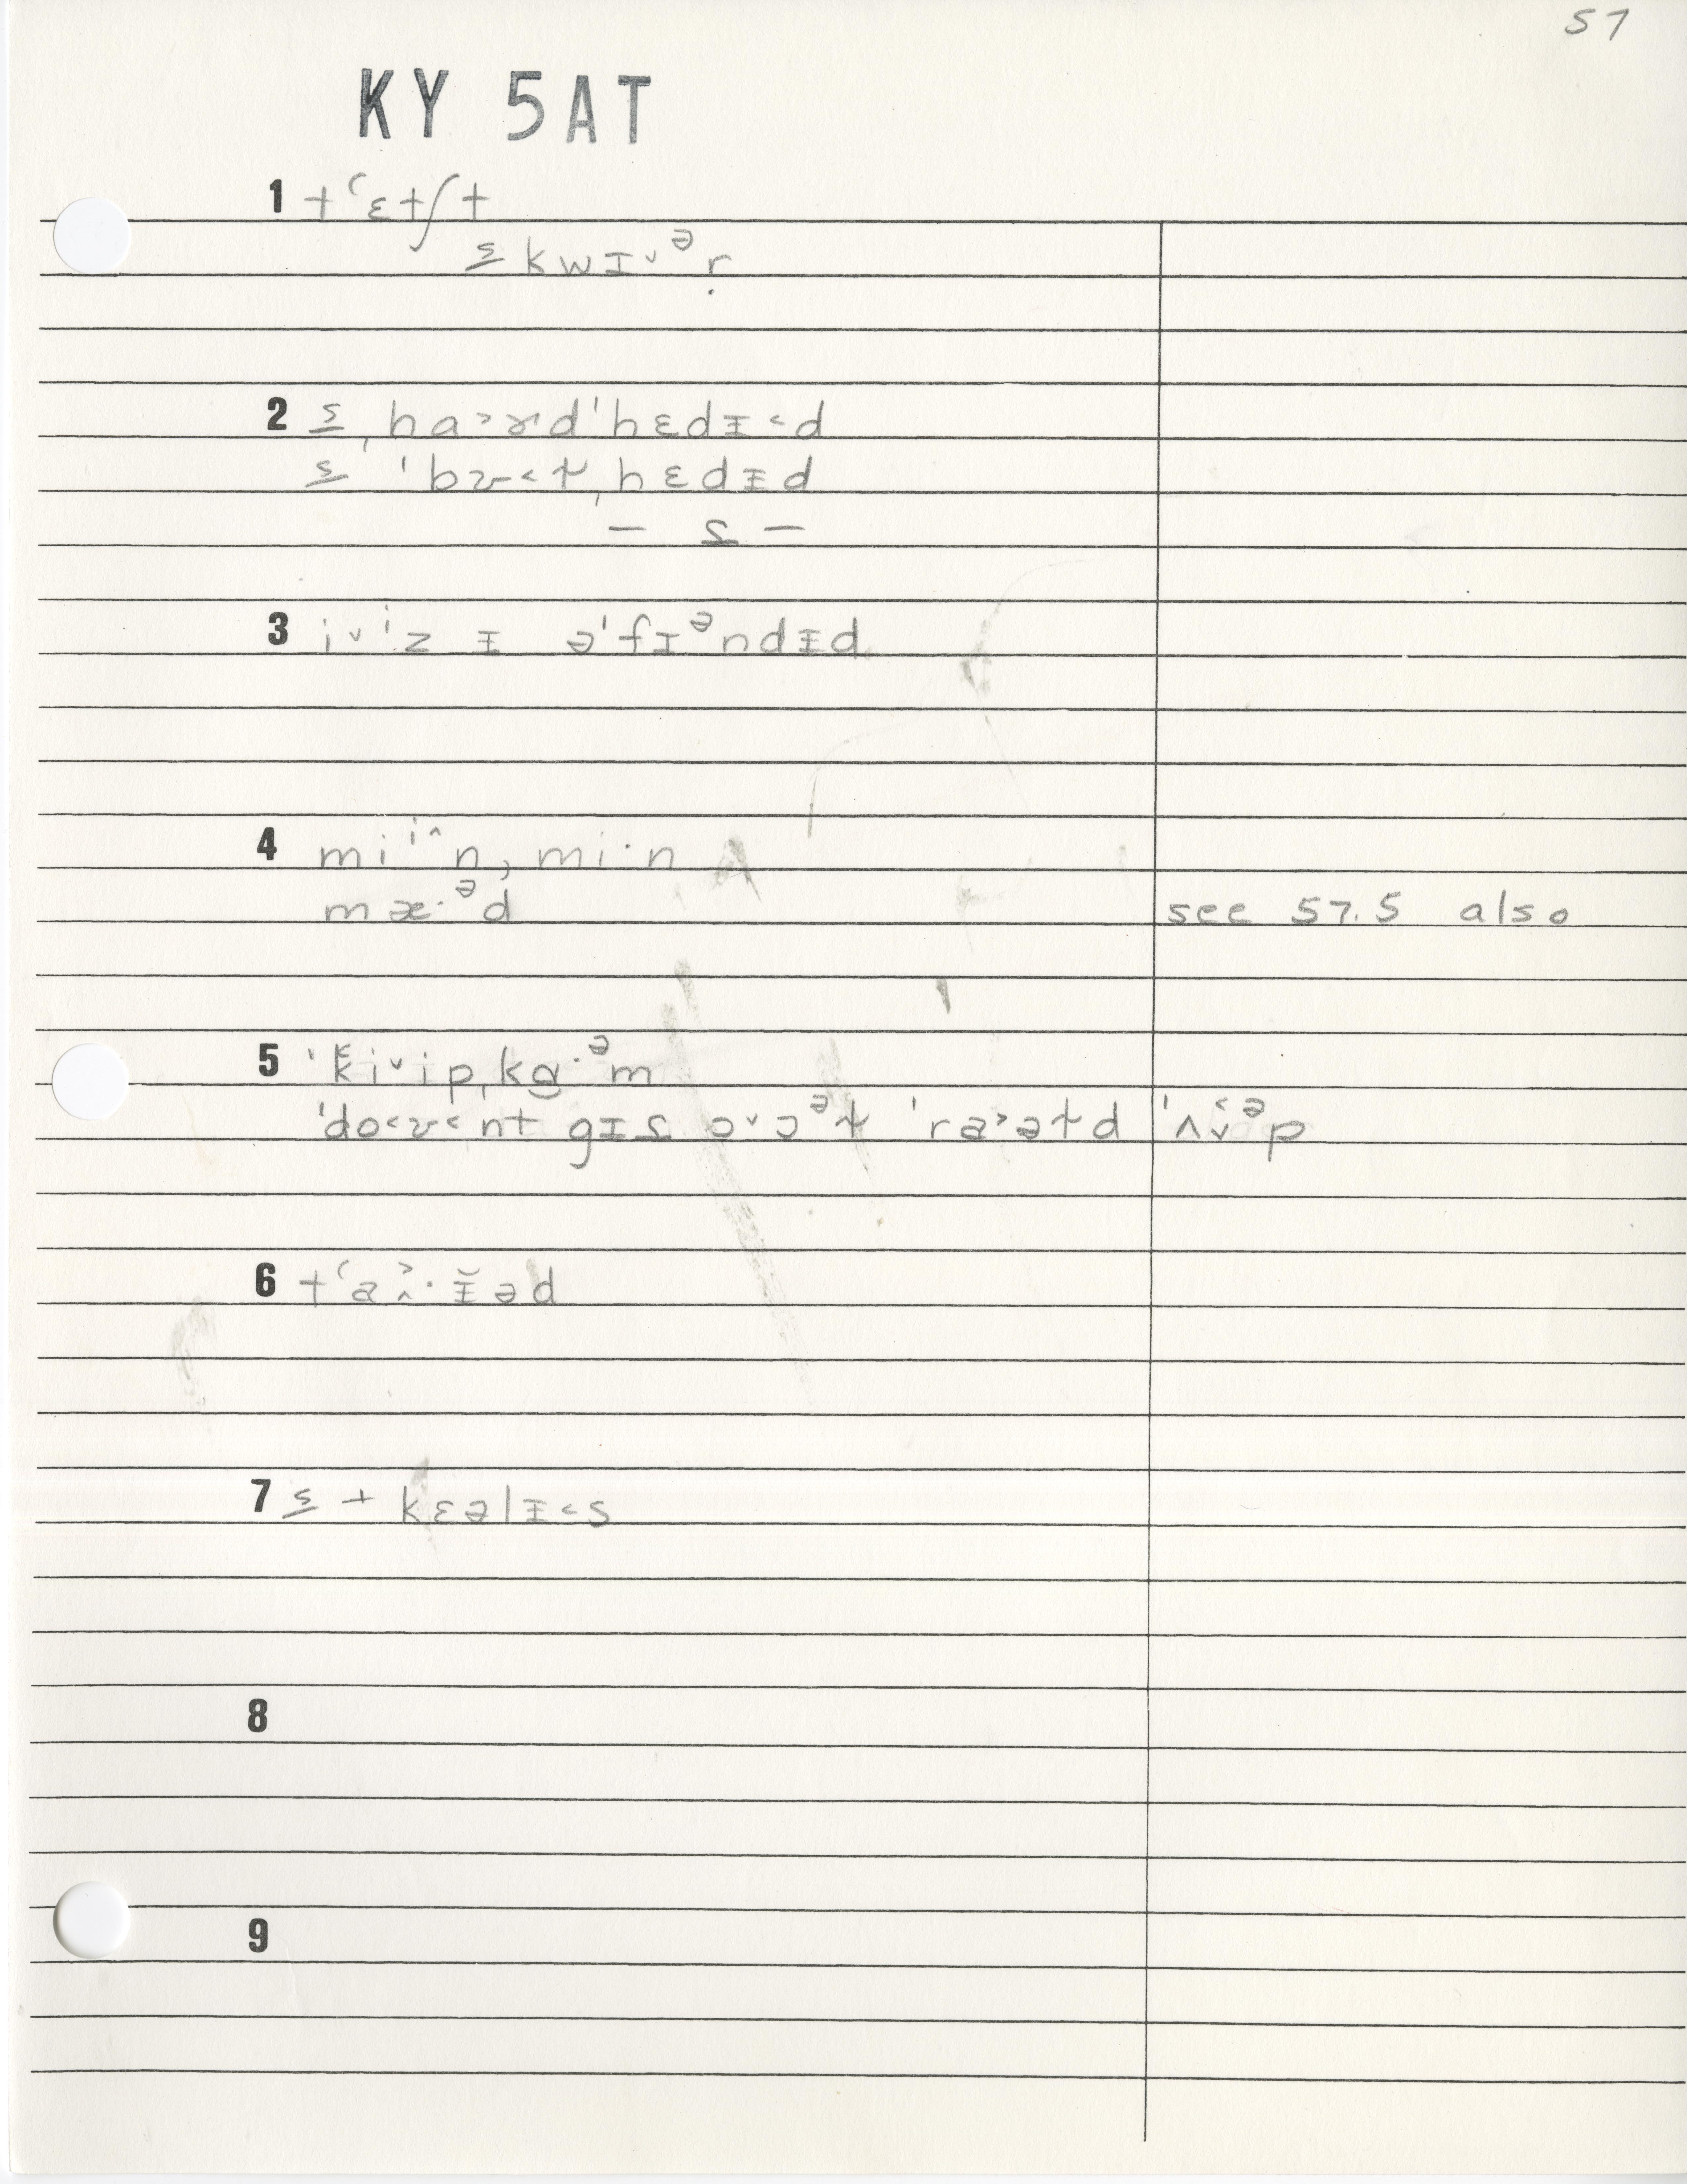 57
KY 5AT
1 tʻɛtʃt
s̲ kwɪ˅ᵊṛ
2 s̲ ˌha˃ɚd'hɛdɪ̵˂d
s̲ 'bʊ˂t̬ˌhɛdɪ̵d
— s̲ —
3 i˅ⁱz ɪ̵ ə'fɪᵊndɪ̵d
4 miⁱ^n, mi·n
mæ·ᵊd
see 57.5 also
5 'ki˅ipˌkɑ·ᵊm
'do˂ʊ˂nt gɪs̲ ɔ˅ɔᵊt̬ 'ra˃ətd 'ʌ̬˂ᵊp
6 tʻa̭˃·ɪ̵̆əd
7 s̲ + kɛəlɪ̵˂s
8
9